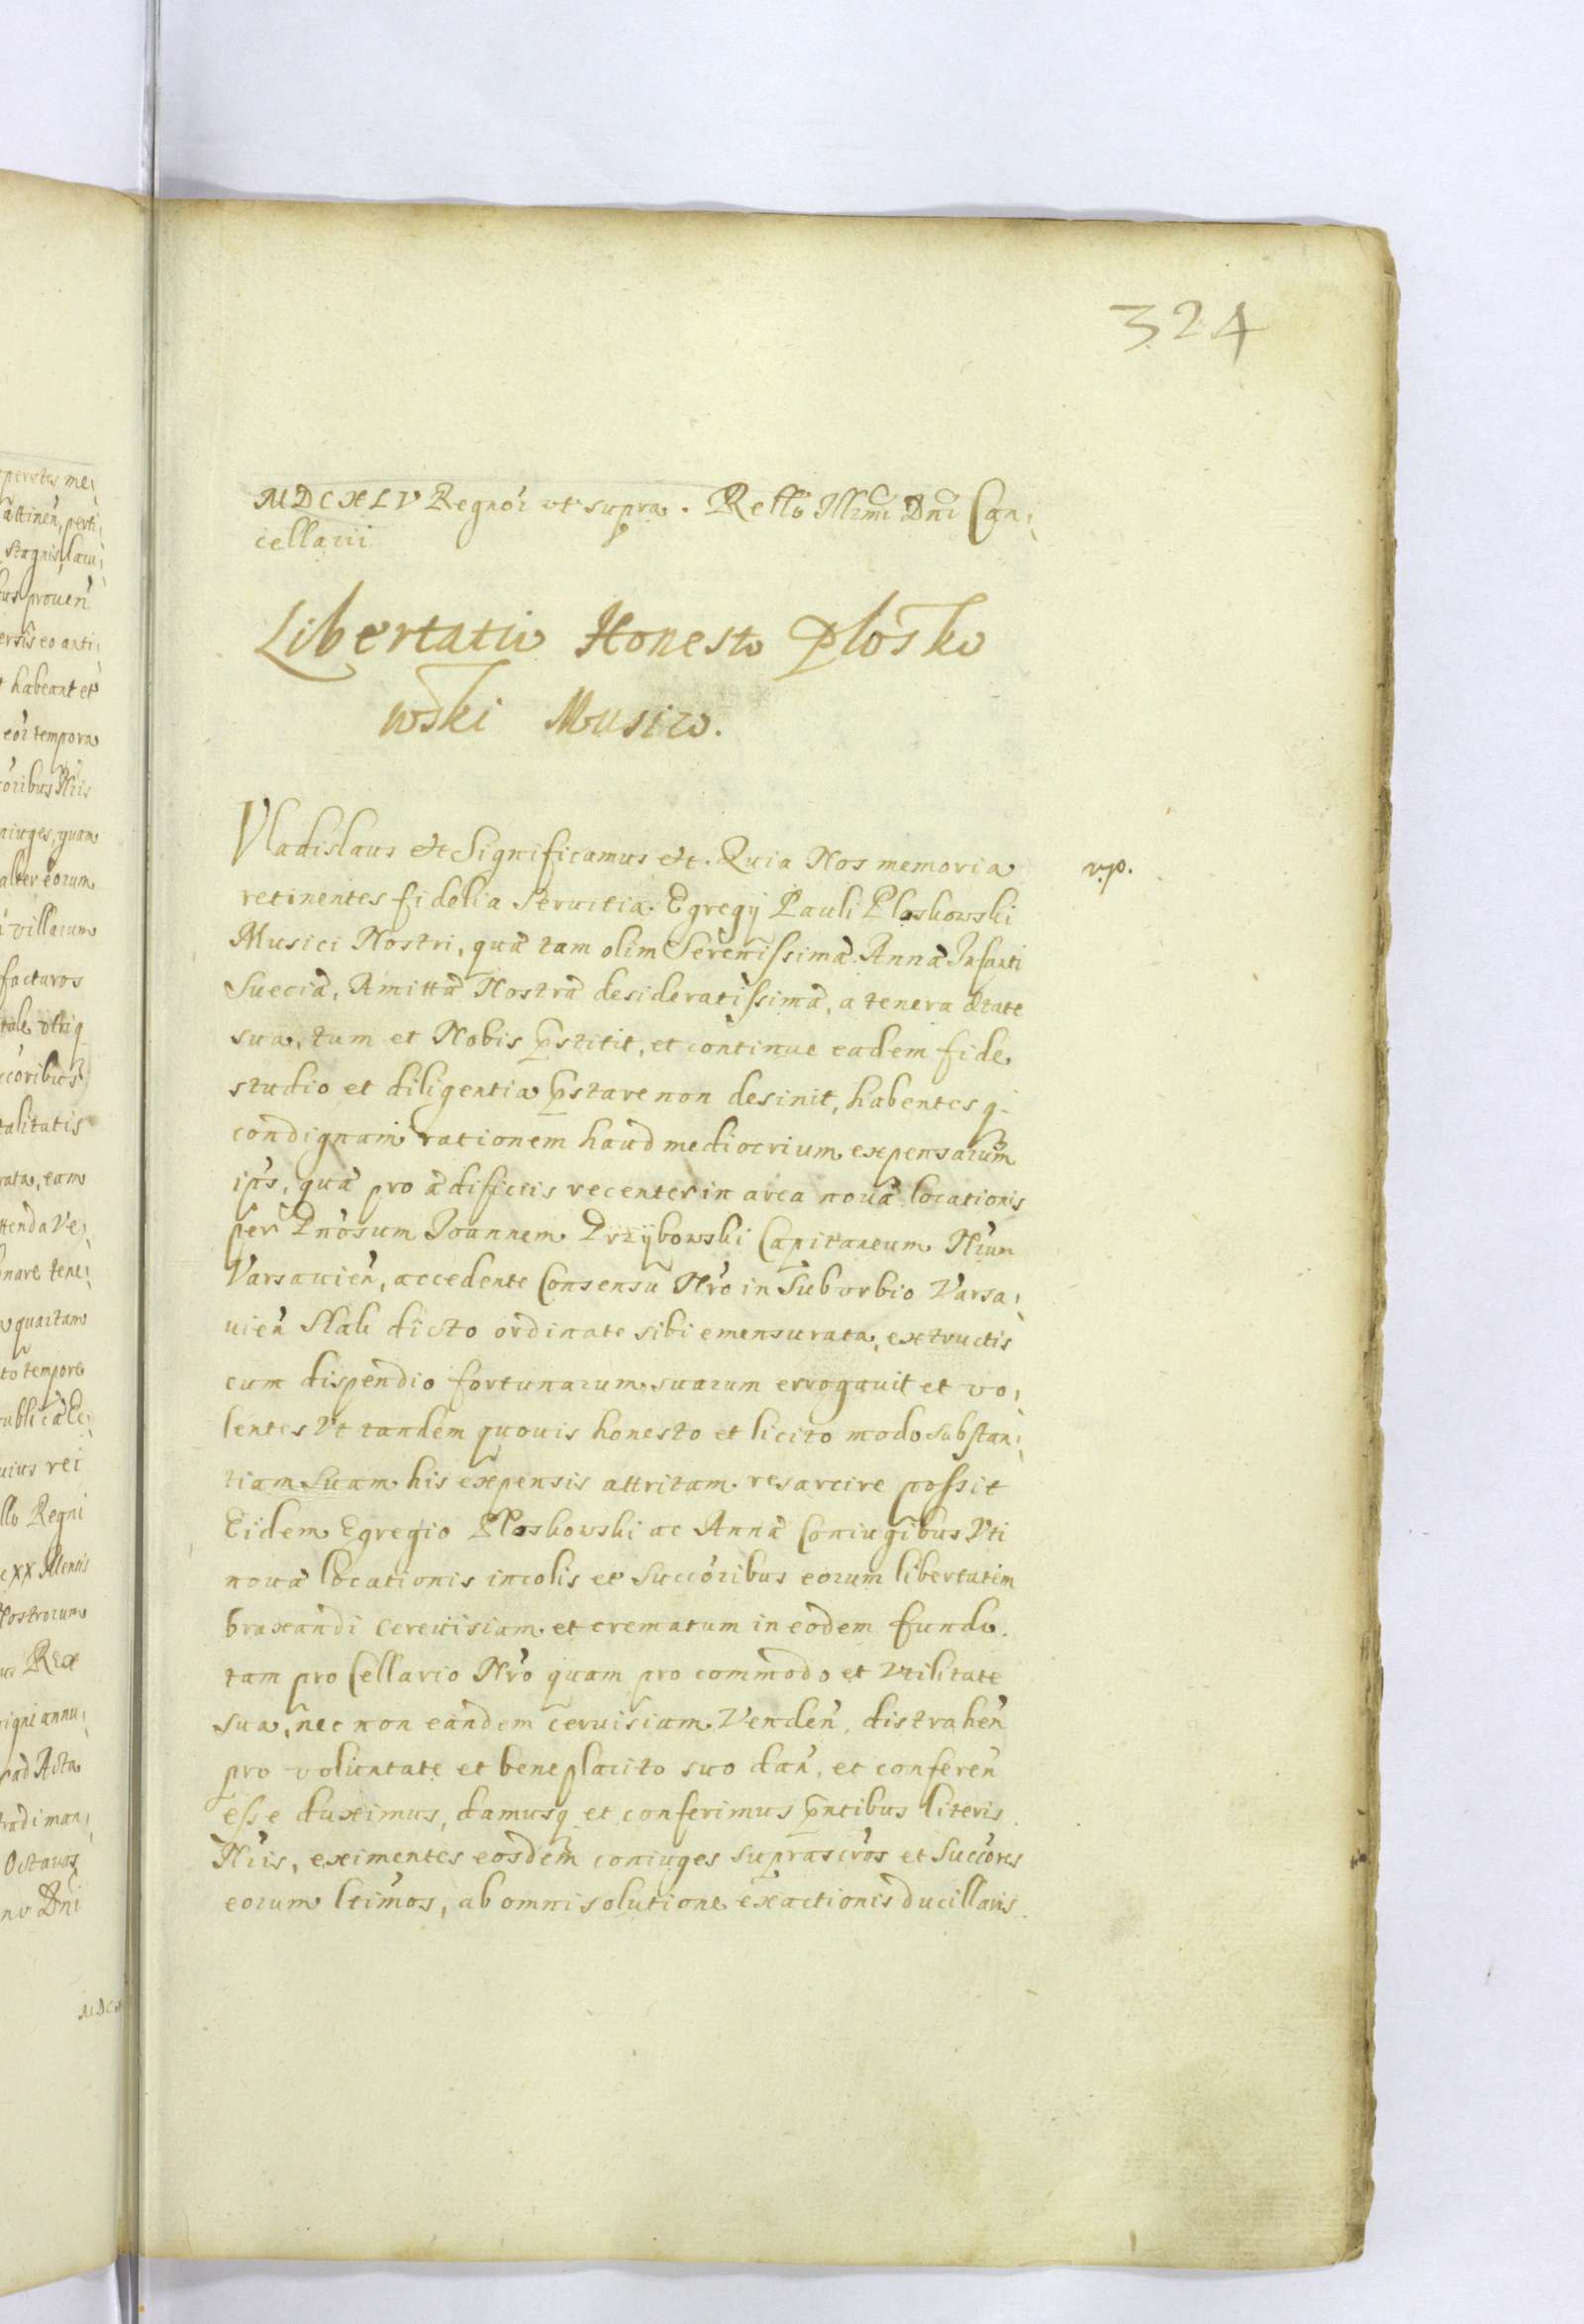 324
MDCXLV Regnoꝝ ut supra. Rello Illmi Dni Can
cellarii
Libertatio Honesto Plosko
wski Musico.
Vladislaus etc Significamus etc. Quia Nos memoria
v.p.
retinentes fidelia servitia Egregij Pauli Ploskowski
Musici Nostri, quæ tam olim Serenissimæ Annæ Infanti
Sueciæ, Amittæ Nostræ desideratissimæ, a tenera ætate
sua, tum et Nobis p̃stitit, et continue eadem fide
studio et diligentia p̃stare non desinit, habentes q
condignam rationem haud mediocrium expensarum
ips, quæ pro ædificiis recenter in area novæ locationis
per Gnosum Joannem Przybowski Capitaneum Nrum
Varsavien, accedente Consensu Nro in Suburbio Varsa
vien Nale dicto ordinate sibi emensurata, extructis
cum dispendio fortunarum suarum errogavit et vo
lentes Vt tandem quovis honesto et licito modo substan
tiam Suam his expensis attritam resarcire possit
Eidem Egregio Ploskowski ac Annæ Coniugibus Vti
novæ locationis incolis et Succoribus eorum libertatem
braxandi Cerevisiam et crematum in eodem fundo.
tam pro Cellario Nro quam pro commodo et Vtilitate
sua, nec non eandem cervisiam Venden, distrahen
pro voluntate et beneplacito suo dan, et conferen
esse duximus, damusq et conferimus p̃ntibus literis
Nris, eximentes eosdem coniuges suprascros et Succores
eorum ltimos, ab omni solutione exactionis ducillaris